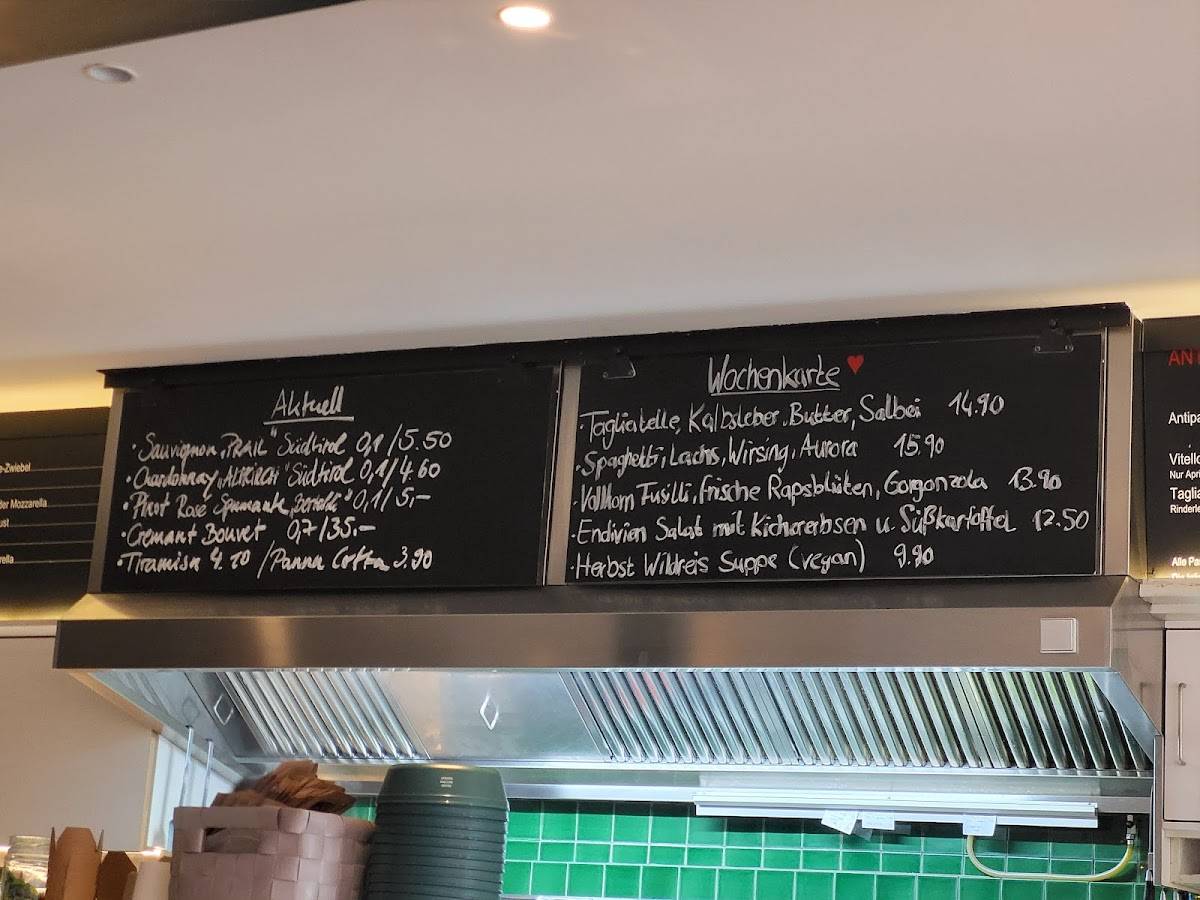 -Zwiebel
der Mozzarella
ust
rella
Aktuell
· Sauvignon „PRAIL" Südtirol 0,1/5.50
· Chardonnay „ALTKIRCH" Südtirol 0,1/4.60
· Pinot Rosé Spumante 0,1/5,–
· Cremant Bouvet 0,7/35.–
· Tiramisu 4.10 / Panna Cotta 3.90
Wochenkarte ♥
· Tagliatelle, Kalbsleber, Butter, Salbei 14.90
· Spaghetti, Lachs, Wirsing, Aurora 15.90
· Vollkorn Fusilli, frische Rapsblüten, Gorgonzola 13.90
· Endivien Salat mit Kichererbsen u. Süßkartoffel 12.50
· Herbst Wildreis Suppe (vegan) 9.90
ANT
Antipa
Vitello
Nur Apri
Taglia
Rinderle
Alle Pa